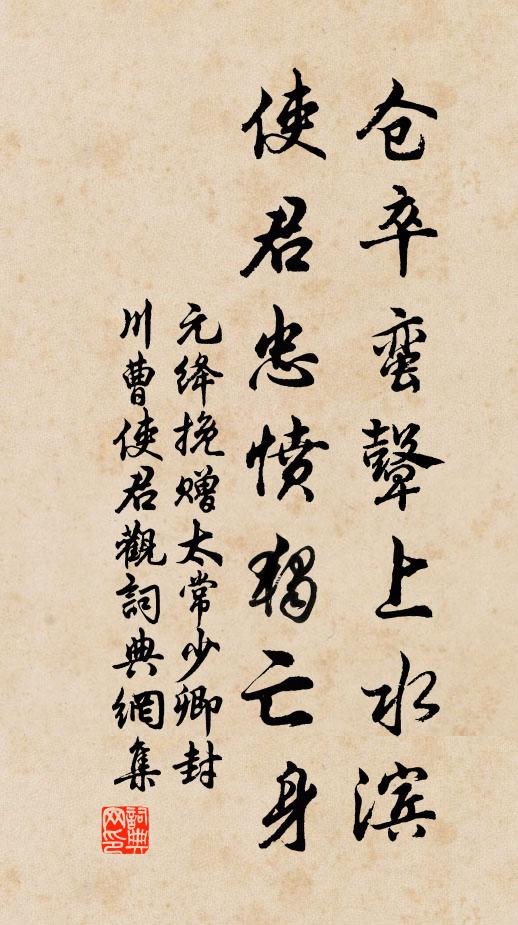 仓卒蛮鼙上水滨
使君忠愤独亡身
元绛挽赠太常少卿封
川曹使君觀詞典網集
詞典
网印